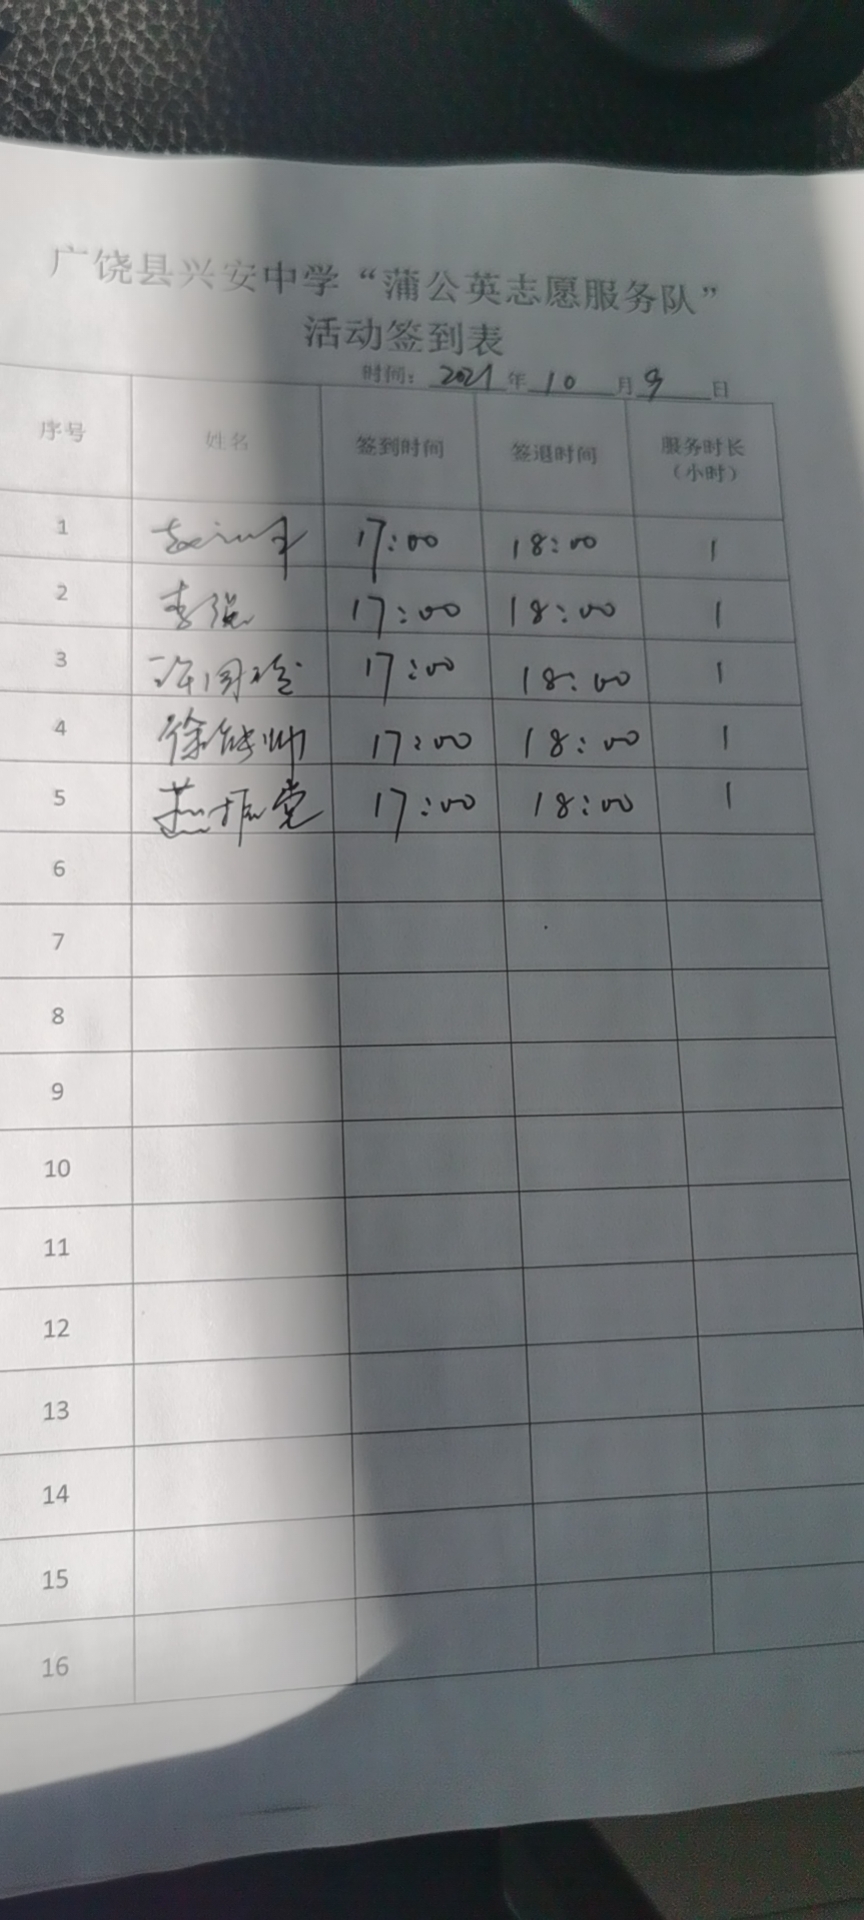 广饶县兴安中学“蒲公英志愿服务队”
活动签到表
时间：2021年10月9日
序号 姓名 签到时间 签退时间 服务时长（小时）
1 17:00 18:00 1
2 李强 17:00 18:00 1
3 17:00 18:00 1
4 徐 帅 17:00 18:00 1
5 燕振党 17:00 18:00 1
6
7
8
9
10
11
12
13
14
15
16